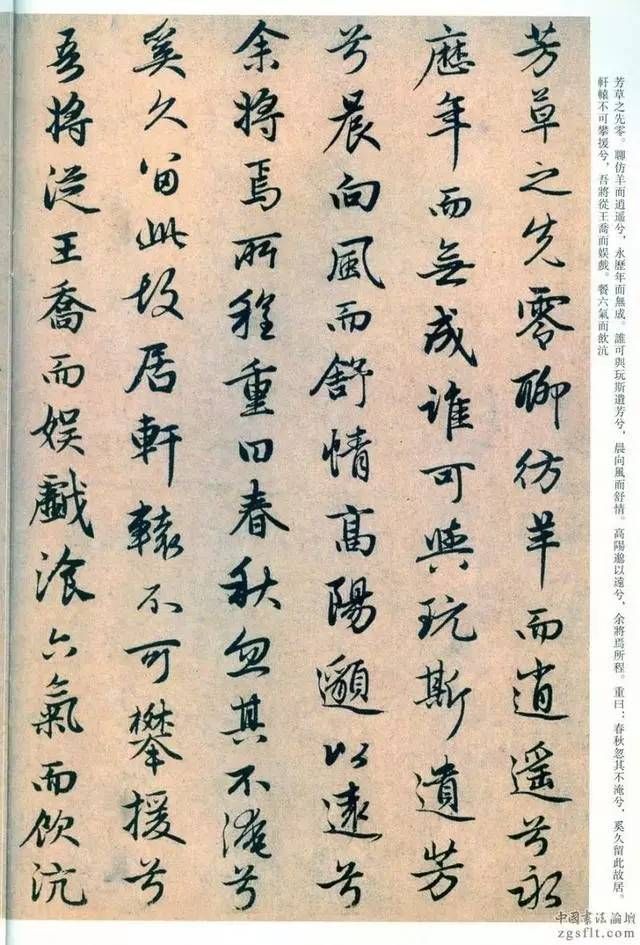 芳草之先零。聊仿羊而逍遥兮，永歷年而無成。誰可與玩斯遺芳兮，晨向風而舒情。高陽邈以遠兮，余將焉所程。重曰：春秋忽其不淹兮，奚久留此故居。
軒轅不可攀援兮，吾將從王喬而娛戲。餐六氣而飲沆
芳草之先零聊仿羊而逍遥兮永
歷年而無成誰可與玩斯遺芳
兮晨向風而舒情高陽邈以遠兮
余將焉所程重曰春秋忽其不淹兮
奚久留此故居軒轅不可攀援兮
吾將從王喬而娛戲湌六氣而飲沆
中国書法論壇
zgsflt.com